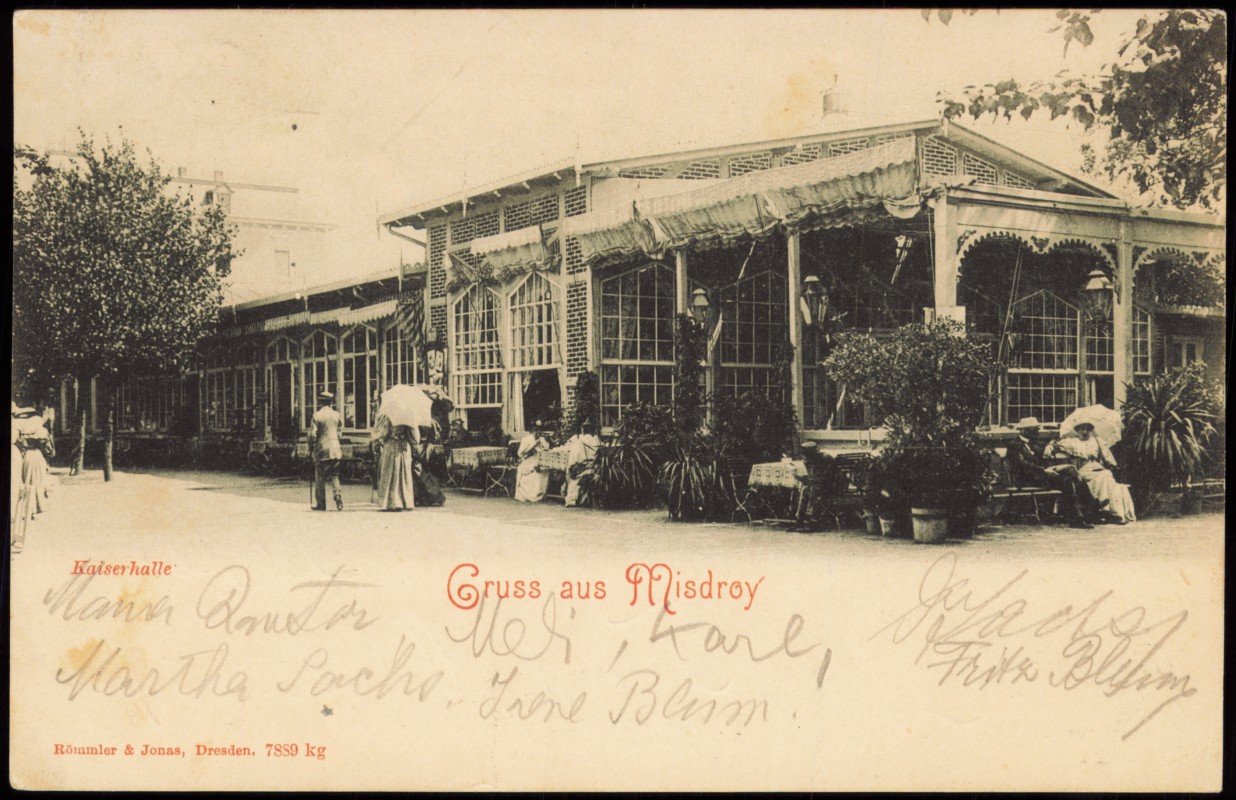 Kaiserhalle
Gruss aus Misdroy
Maria
Meli, Karl,
Martha Sachs. Irene Blum.
Fritz Blum
Römmler & Jonas, Dresden. 7889 kg